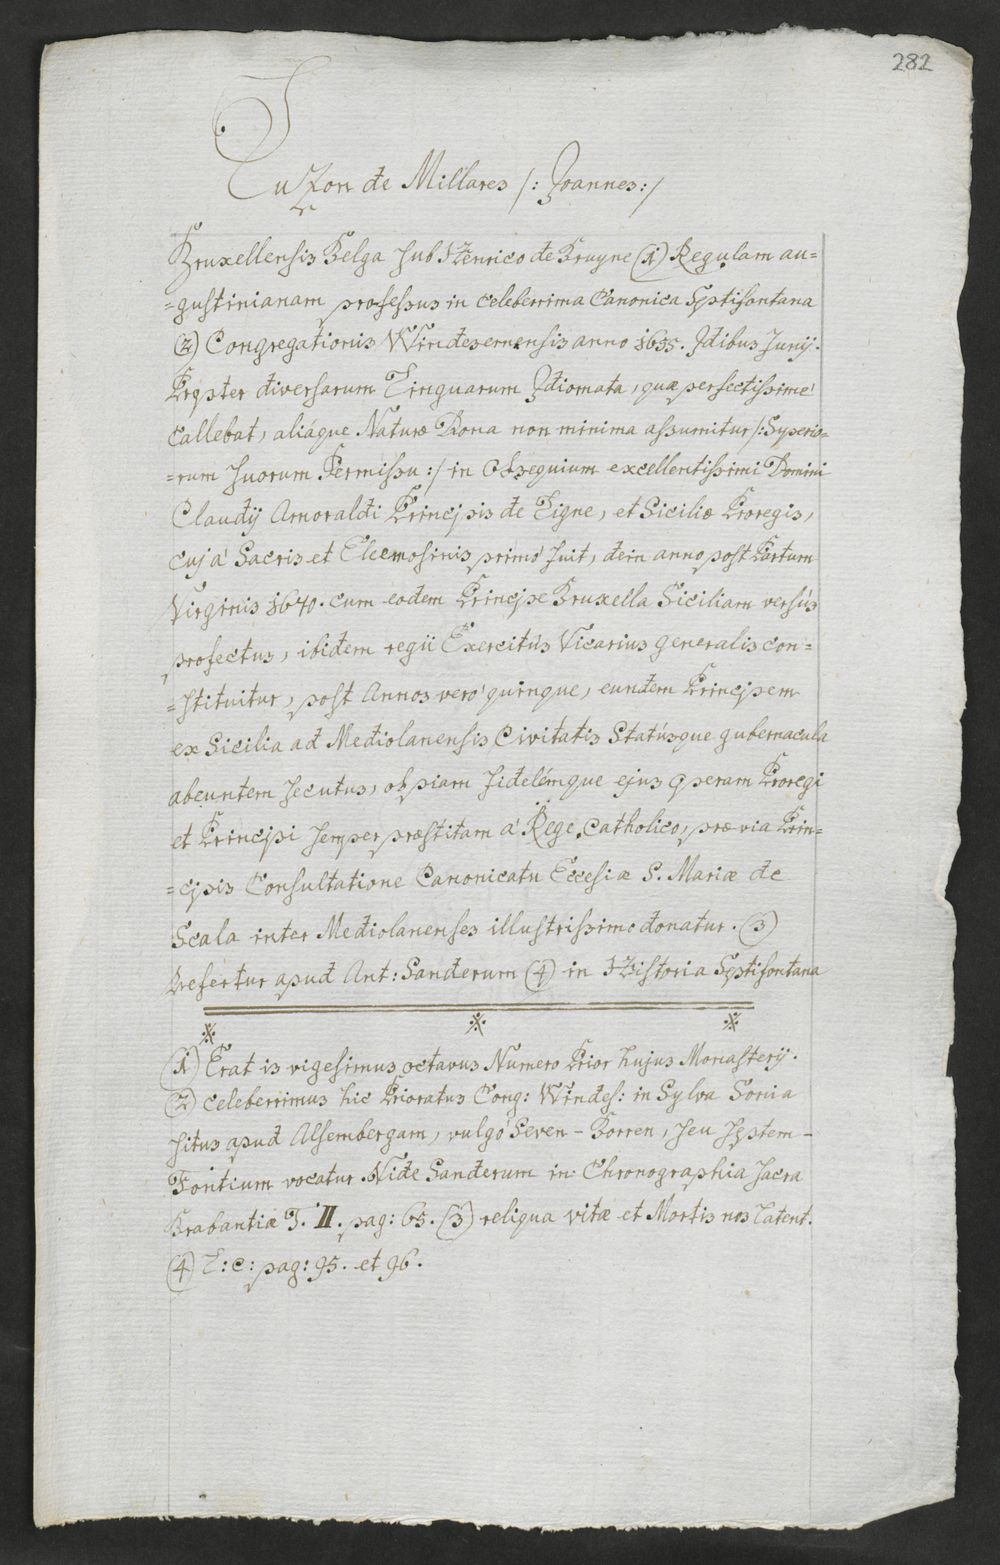 282
Luzon de Millares /: Joannes :/
Bruxellensis Belga sub Henrico de Bruyne (1) Regulam au=
=gustinianam professus in celeberrima Canonica Septifontana
(2) Congregationis Windesemensis anno 1655. Jdibus Junij.
Propter diversarum Linguarum Jdiomata, quæ perfectissimè
callebat, aliáque Naturæ Dona non minima assumitur /: Superio=
=rum suorum Permissu :/ in Obsequium excellentissimi Domini
Claudij Amoraldi Principis de Ligne, et Siciliæ Proregis,
cuj à Sacris et Eleemosinis primò fuit, dein anno post Partum
Virginis 1670. cum eodem Principe Bruxella Siciliam versùs
profectus, ibidem regii Exercitûs Vicarius generalis con=
=stituitur, post Annos verò quinque, eundem Principem
ex Sicilia ad Mediolanensis Civitatis Statûsque gubernacula
abeuntem secutus, ob piam fidelémque ejus operam Proregi
et Principi semper præstitam à Rege Catholico, prævia Prin=
=cipis Consultatione Canonicatu Eccesiæ S. Mariæ de
Scala inter Mediolanenses illustrissimo donatur. (3)
Refertur apud Ant: Sanderum (4) in Historia Septifontana
(1) Erat is vigesimus octavus Numero Prior hujus Monasterij.
(2) celeberrimus hic Prioratus Cong: Windes: in Sylva Sonia
situs apud Alsembergam, vulgò Seven-Borren, seu septem-
Fontium vocatur. Vide Sanderum in Chronographia sacra
Brabantiæ T. II. pag: 65. (3) reliqua vitæ et Mortis nos latent.
(4) L: c: pag: 95. et 96.